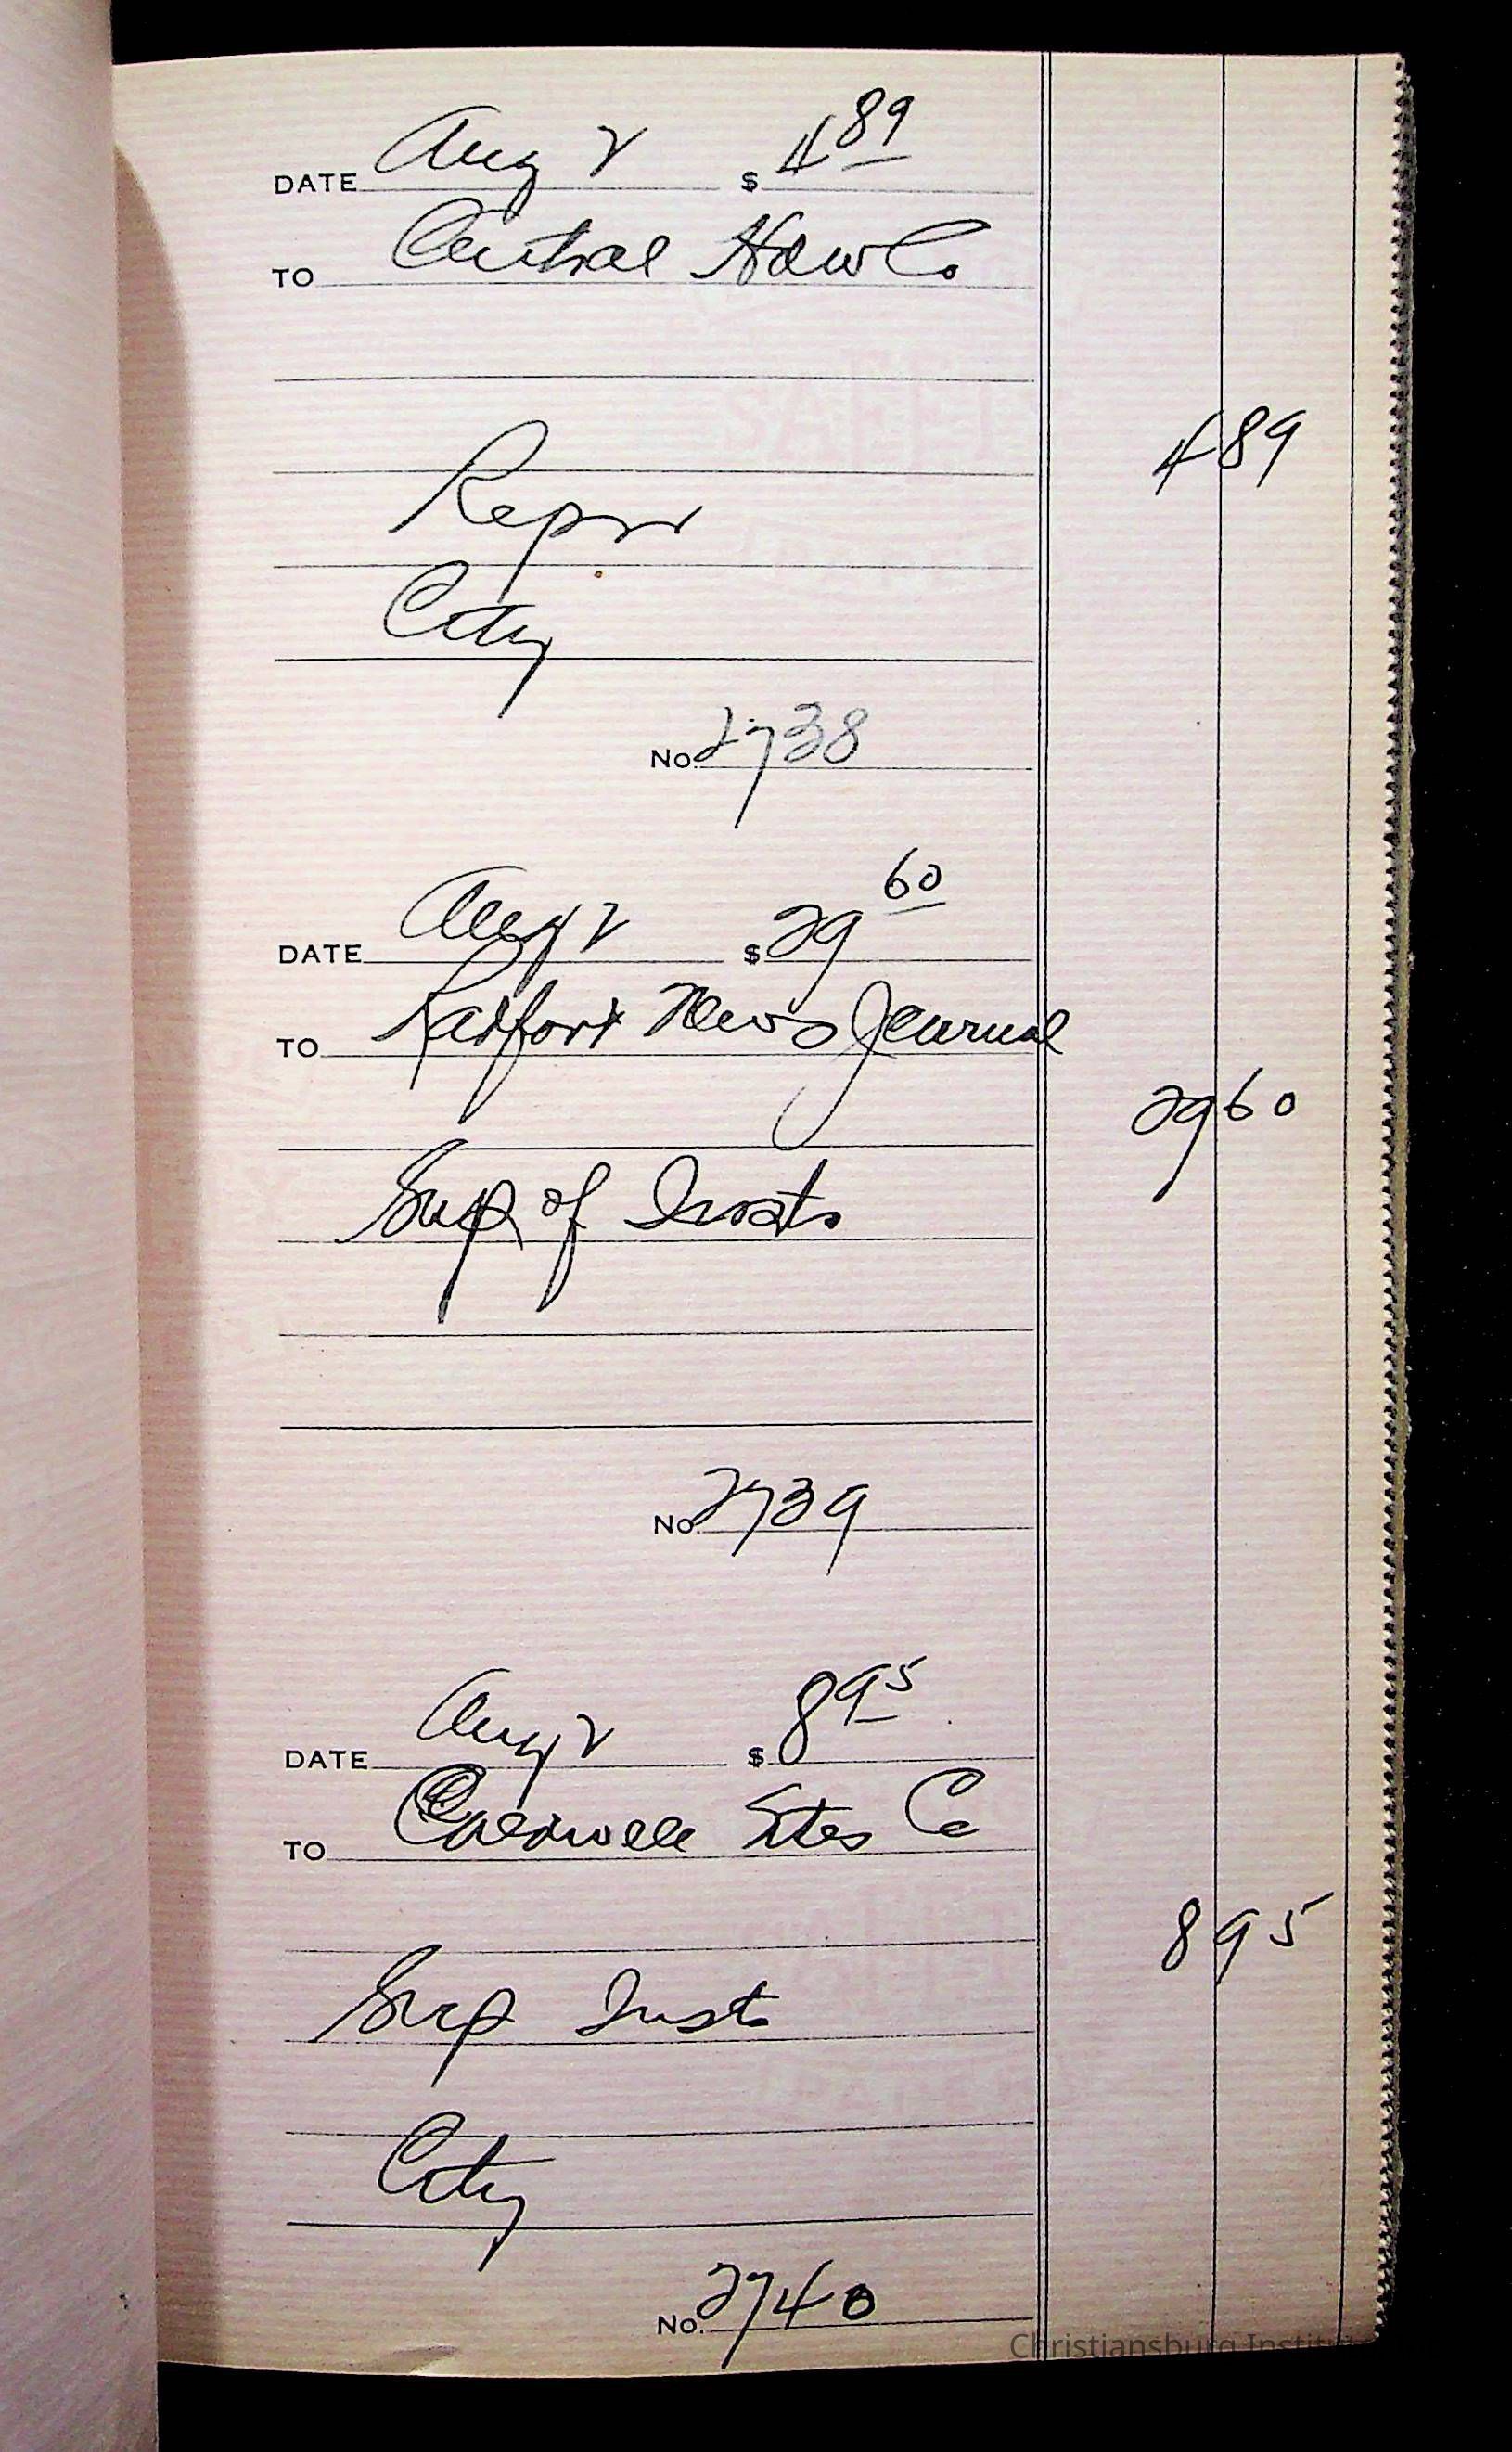 DATE Aug 2 $ 4 89
TO Central Hdw Co
4 89
Repr
City
No. 2738
DATE Aug 2 $ 29 60
TO Radford News Journal
29 60
Sup of Insts
No. 2739
DATE Aug 2 $ 8 95
TO Caldwell Sites Co
8 95
Sup Inst
City
No. 2740
Christiansburg Institute